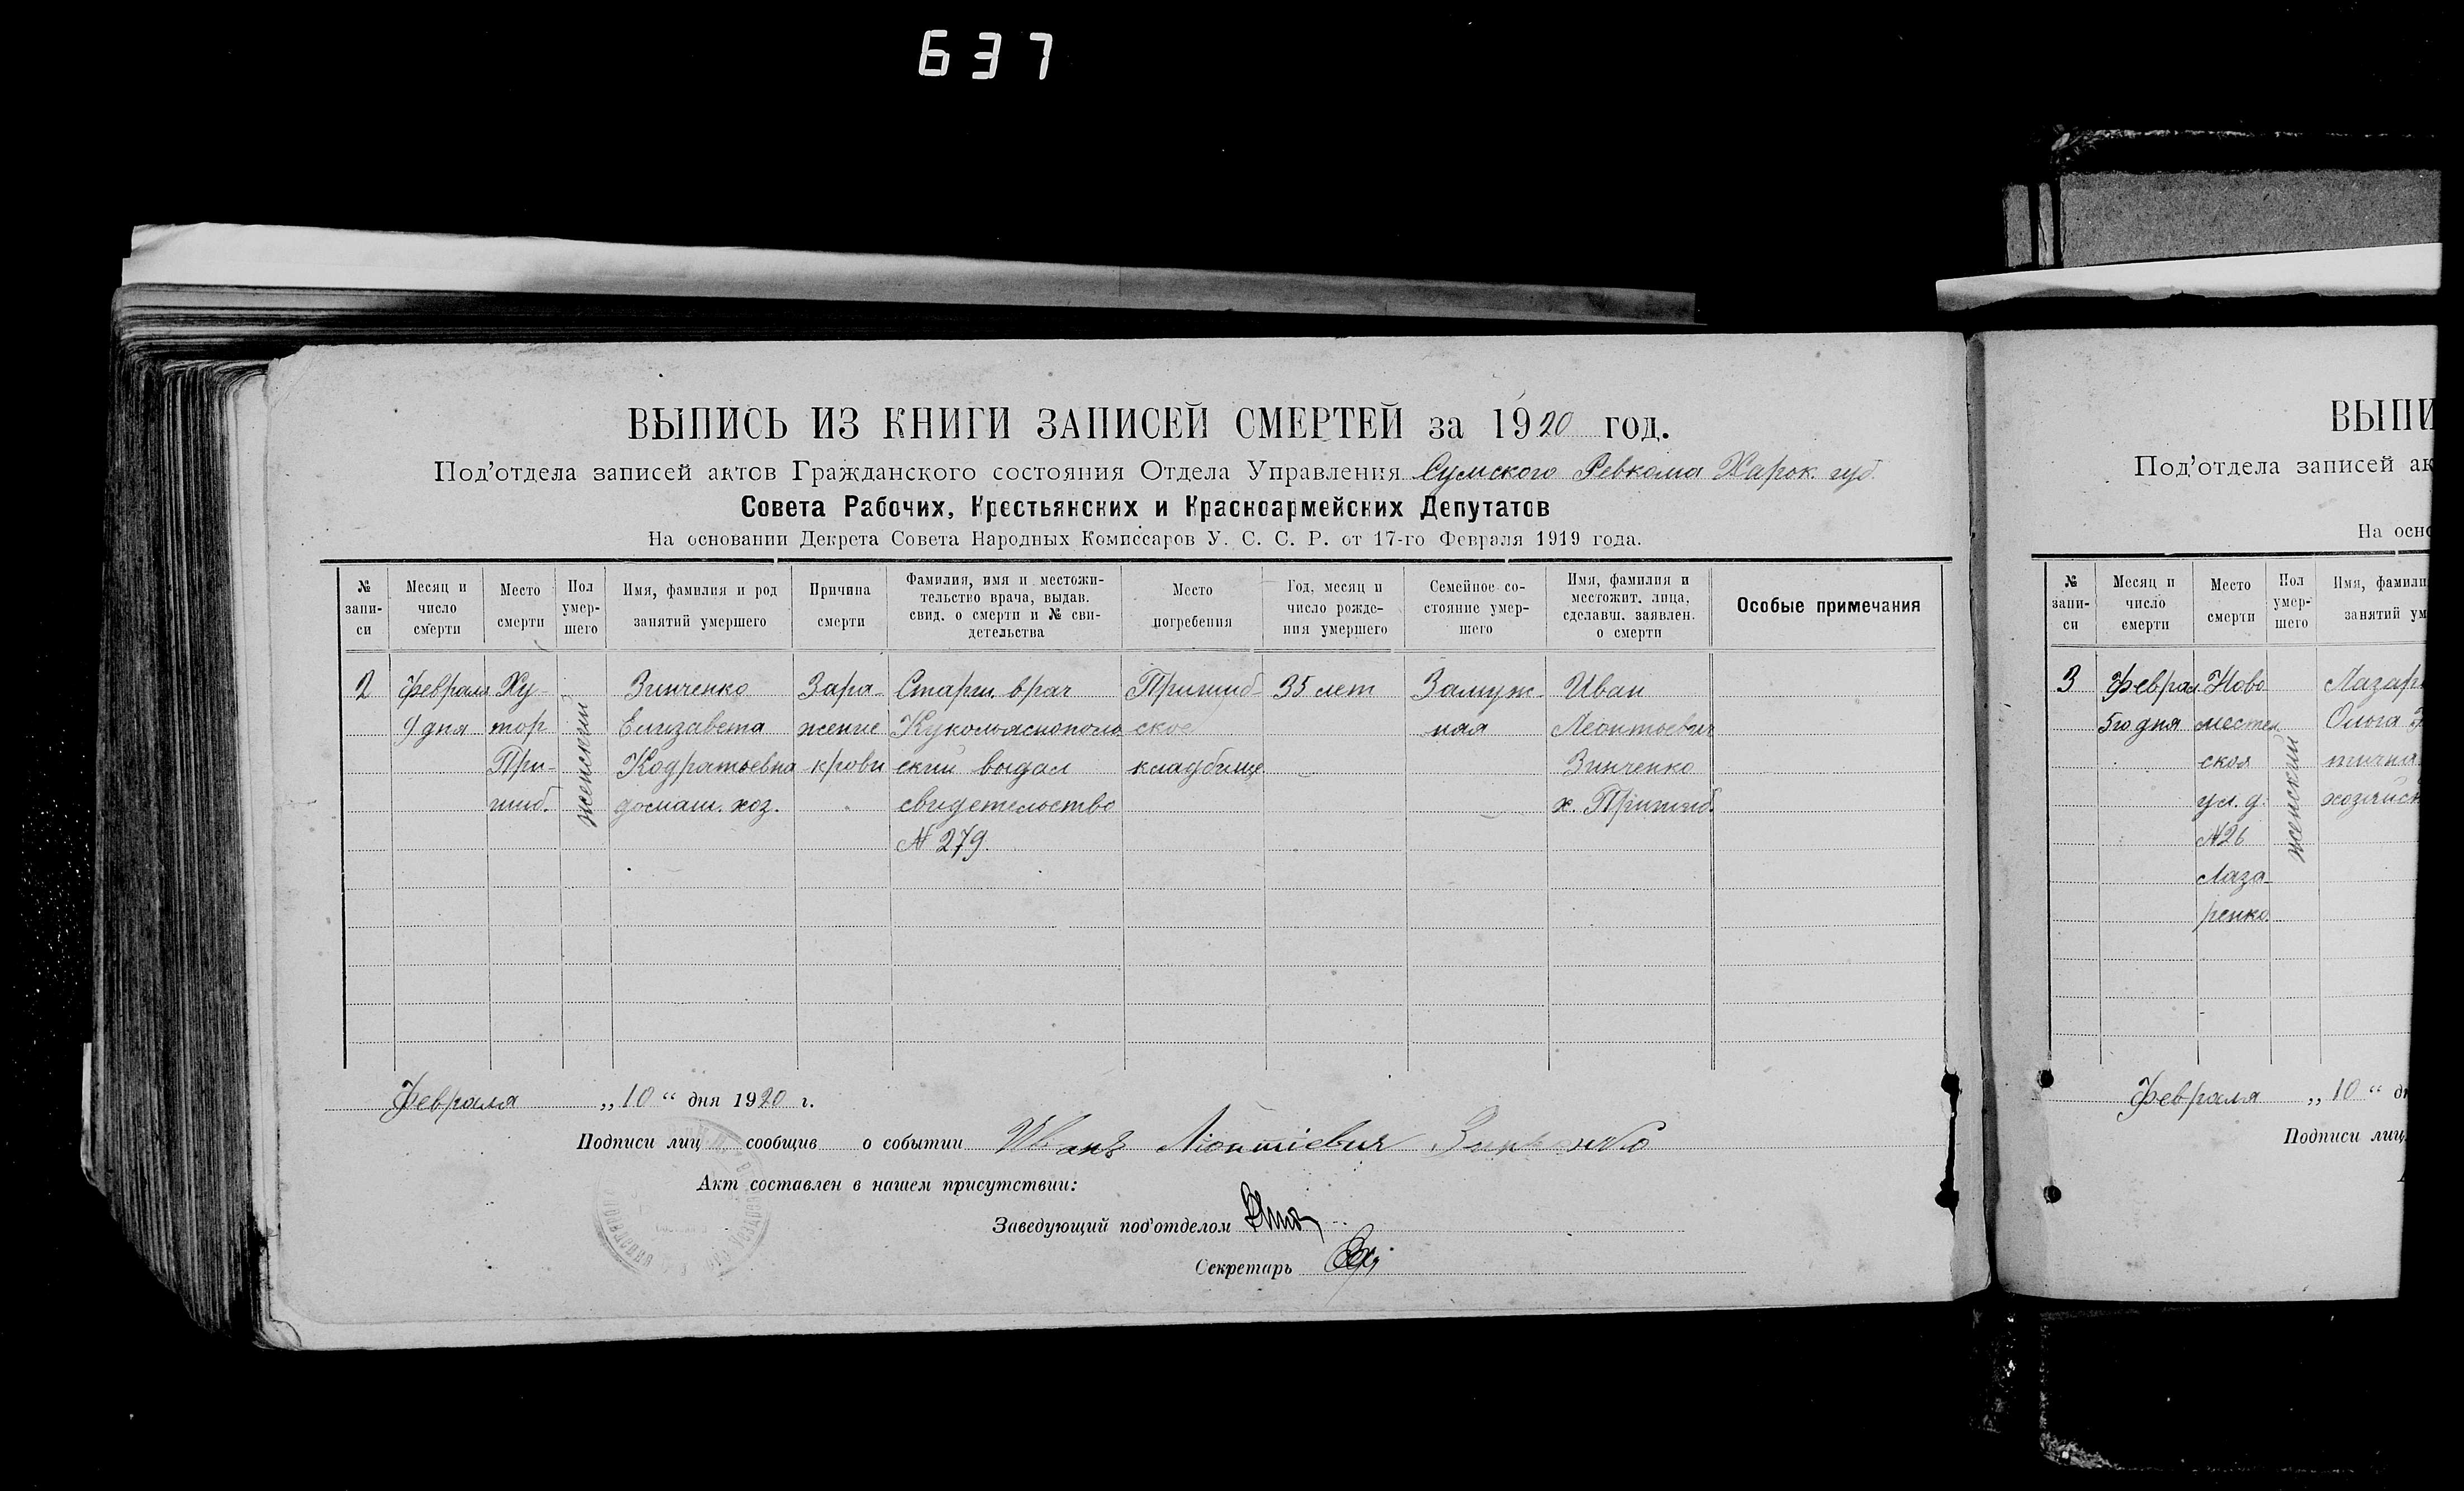 637
ВЫПИСЬ ИЗ КНИГИ ЗАПИСЕЙ СМЕРТЕЙ за 1920 год.
Под'отдела записей актов Гражданского состояния Отдела Управления Сумского Ревкома Харок. губ.
Совета Рабочих, Крестьянских и Красноармейских Депутатов
На основании Декрета Совета Народных Комиссаров У. С. С. Р. от 17-го Февраля 1919 года.
№ запи-си
Месяц и число смерти
Место смерти
Пол умер-шего
Имя, фамилия и род занятий умершего
Причина смерти
Фамилия, имя и местожи-тельство врача, выдав. свид. о смерти и № сви-детельства
Место погребения
Год, месяц и число рожде-ния умершего
Семейное со-стояние умер-шего
Имя, фамилия и местожит. лица, сделавш. заявлен. о смерти
Особые примечания
2
февраля
9 дня
Ху-
тор
При-
шиб.
женский
Зинченко
Елизавета
Кодратьевна
домаш. хоз.
Зара-
жение
крови
Старш. врач
ский выдал
свидетельство
№ 279.
Пришиб-
ское
кладбище
35 лет
Замуж-
ная
Иван
Леонтьевич
Зинченко
х. Пришиб.
Февраля „10“ дня 1920 г.
Подписи лиц сообщив о событии Иванъ Лионтіевич Зинченко
Акт составлен в нашем присутствии:
Заведующий под'отделом
Секретарь
ВЫПИ
Под'отдела записей ак
На осно
№ запи-си
Месяц и число смерти
Место смерти
Пол умер-шего
Имя, фамили
занятий ум
3
Феврал
5го дня
Ново
местен
ская
ул. д.
№26
Лаза-
ренко
женский
Лазар
Ольга
хозяйс
Февраля „10“ д
Подписи лиц